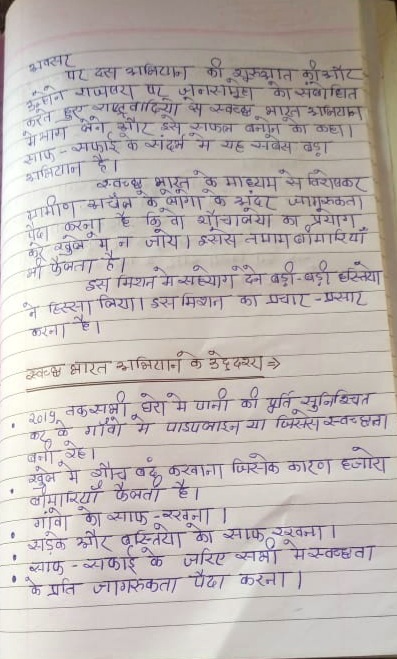 अवसर
पर इस अभियान की शुरुआत की और
उन्होंने राजपथ पर जनसमूह को संबोधित
करते हुए राष्ट्रवादियो से स्वच्छ भारत अभियान
मे भाग लेने और इसे सफल बनाने को कहा।
साफ-सफाई के संदर्भ मे यह सबसे बड़ा
अभियान है।
स्वच्छ भारत के माध्यम से विशेषकर
ग्रामीण अचंल के लोगो के अंदर जागरूकता
पैदा करना है कि वो शौचालयो का प्रयोग
करे खुले मे न जाये। इससे तमाम बीमारियाँ
भी फैलता है।
इस मिशन मे सहयोग देने बड़ी-बड़ी हस्तियो
ने हिस्सा लिया। इस मिशन का प्रचार-प्रसार
करना है।
स्वच्छ भारत अभियान के उद्देश्य ⇒
• 2019 तक सभी घरो मे पानी की पूर्ति सुनिश्चित
कर के गाँवो मे पाइपलाइन या जिससे स्वच्छता
बनी रहे।
• खुले मे शौच बंद करवाना जिसके कारण हजारो
बीमारियाँ फैलती है।
• गांवो को साफ-रखना।
• सड़के और बस्तियो को साफ रखना।
• साफ-सफाई के जरिए सभी मे स्वच्छता
के प्रति जागरूकता पैदा करना।